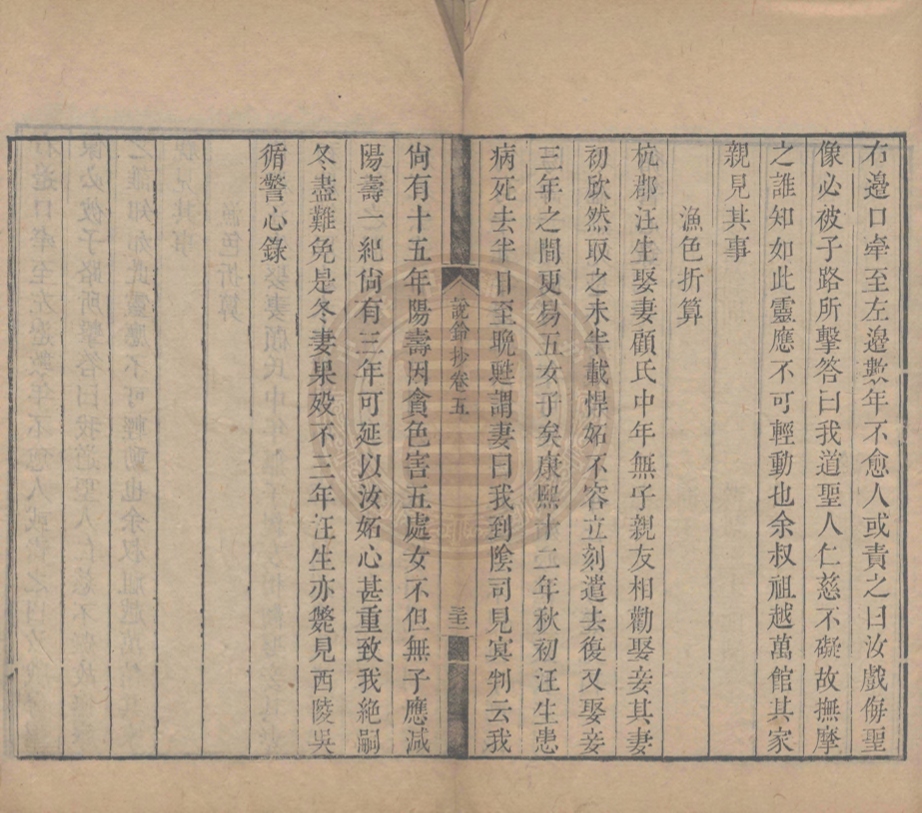 右邊口牽至左邊數年不愈人或責之曰汝戲侮聖
像必被子路所擊答曰我道聖人仁慈不礙故撫摩
之誰知如此靈應不可輕動也余叔祖越萬館其家
親見其事
漁色折算
杭郡汪生娶妻顧氏中年無子親友相勸娶妾其妻
初欣然取之未半載悍妬不容立刻遣去復又娶妾
三年之間更易五女子矣康熙十二年秋初汪生患
病死去半日至晚甦謂妻曰我到陰司見冥判云我
說鈴抄卷五
三十二
尙有十五年陽壽因貪色害五處女不但無子應减
陽壽一紀尙有三年可延以汝妬心甚重致我絶嗣
冬盡難免是冬妻果歿不三年汪生亦斃見西陵吳
循警心錄